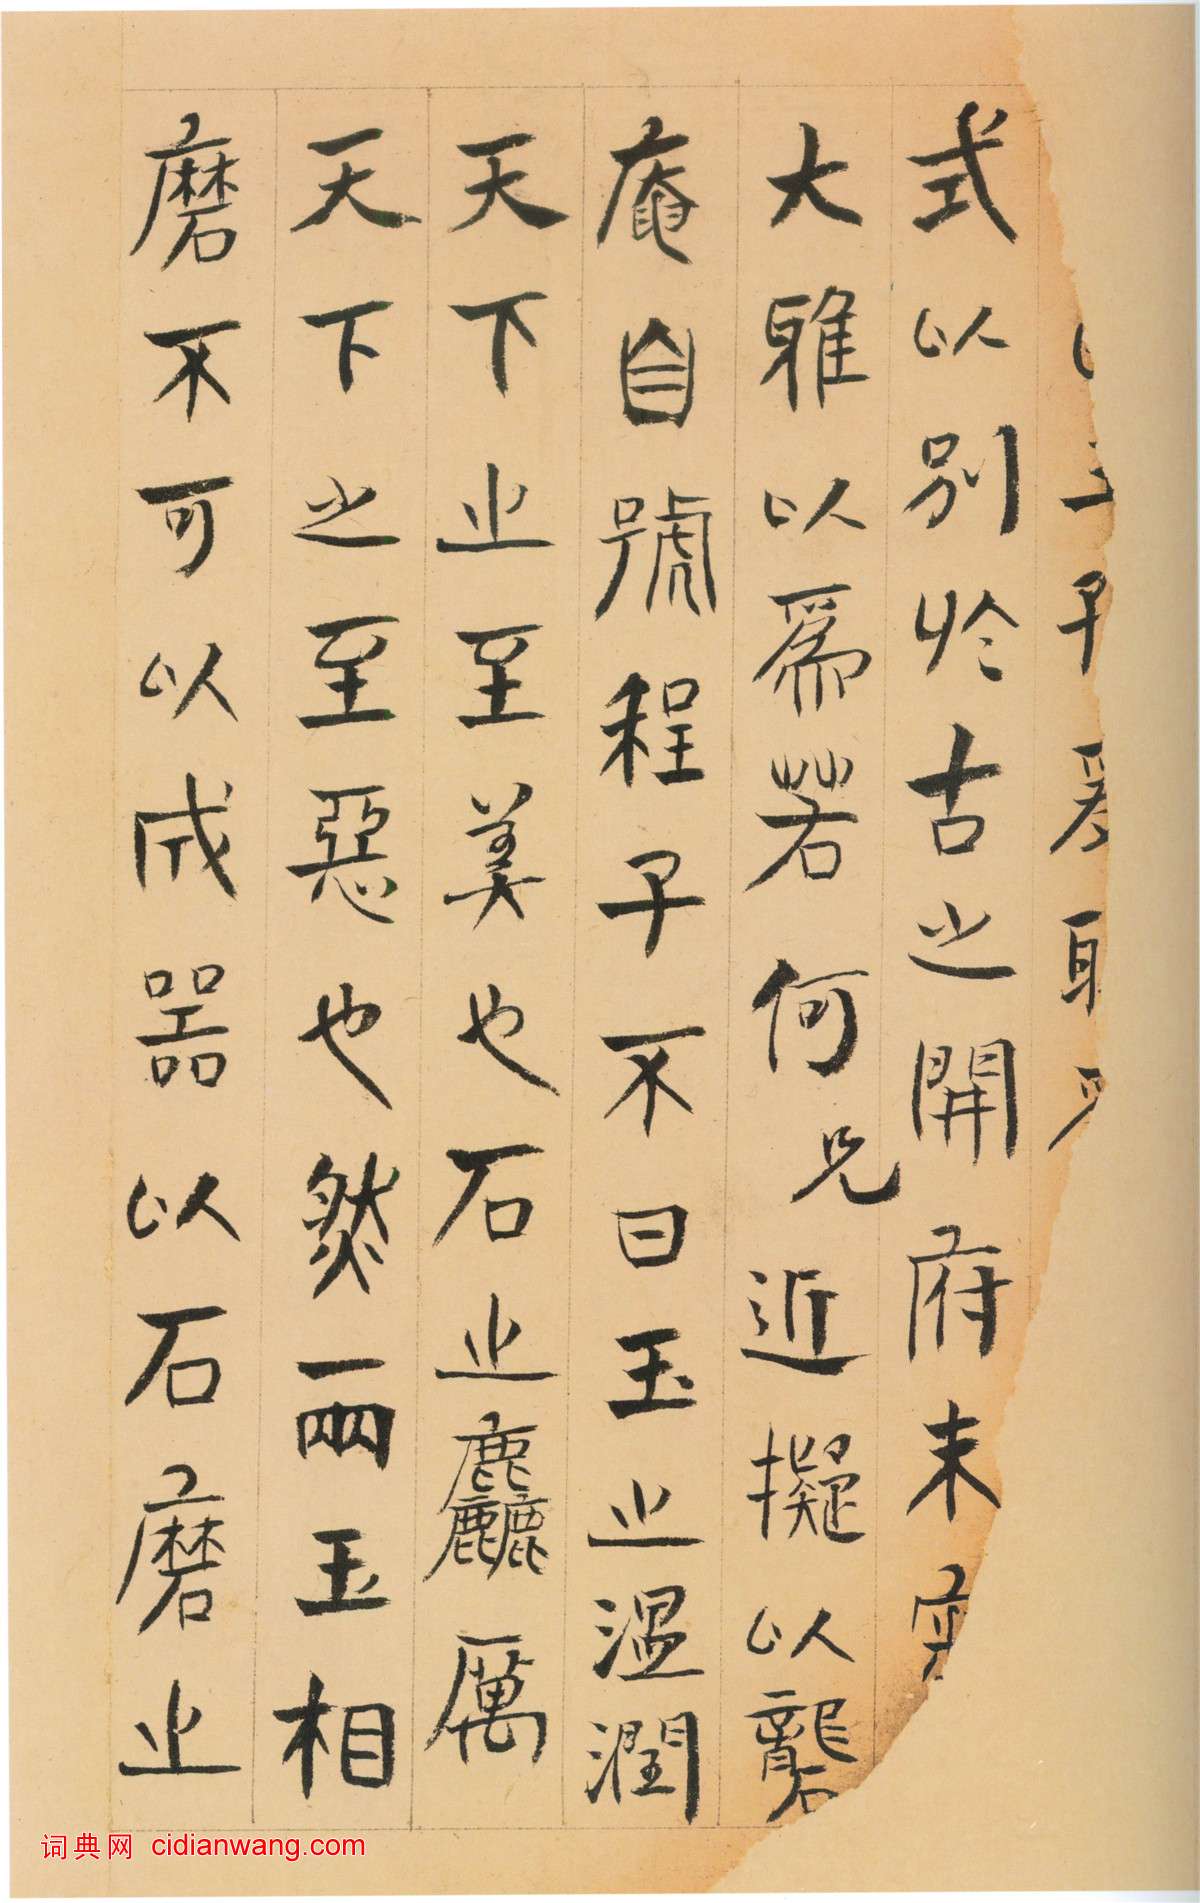 子爲取
式以別於古之開府未實
大雅以爲若何兄近擬以礱
庵自號程子不曰玉之溫潤
天下之至美也石之麤厲
天下之至惡也然兩玉相
磨不可以成器以石磨之
词典网 cidianwang.com